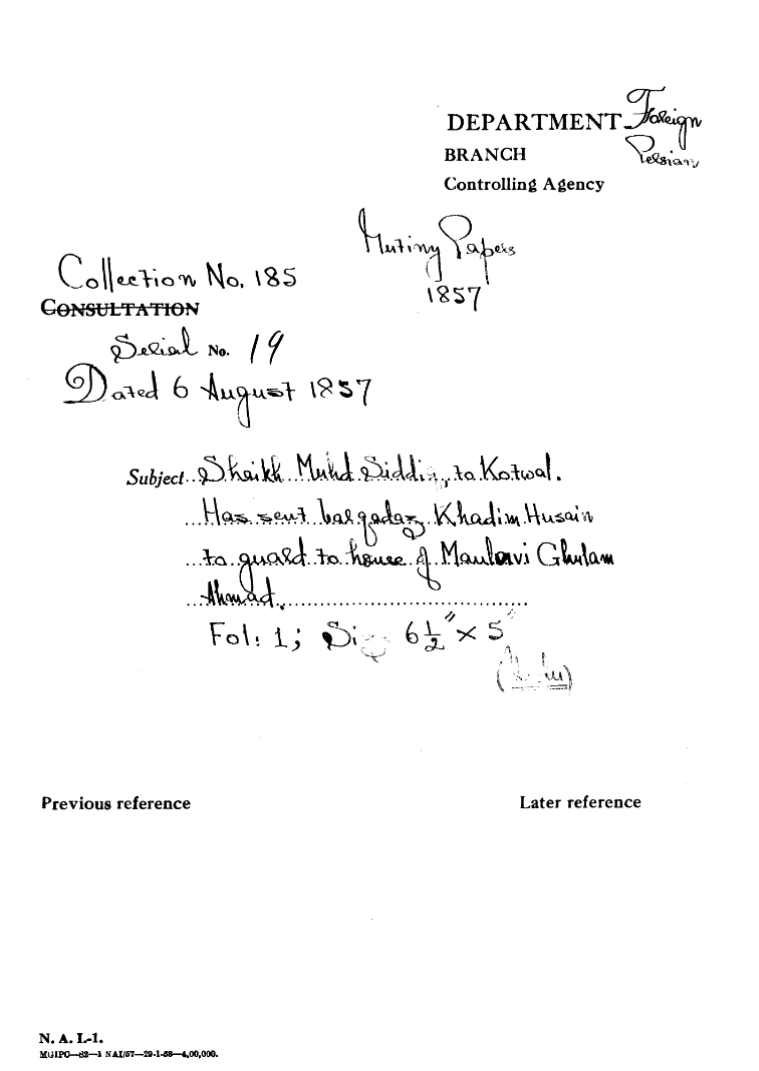 DEPARTMENT Foreign
BRANCH Persian
Controlling Agency
Mutiny Papers
1857
Collection No. 185
CONSULTATION
Serial No. 19
Dated 6 August 1857
Subject Sheikh Muhd Siddiq, to Kotwal.
Has sent barqadaz Khadim Husain
to guard to house of Maulavi Ghulam
Ahmad.
Fol: 1; Size 6½" × 5"
Previous reference
Later reference
N. A. I.-1.
MGIPC—82—1 NAI/57—29-1-58—4,00,000.